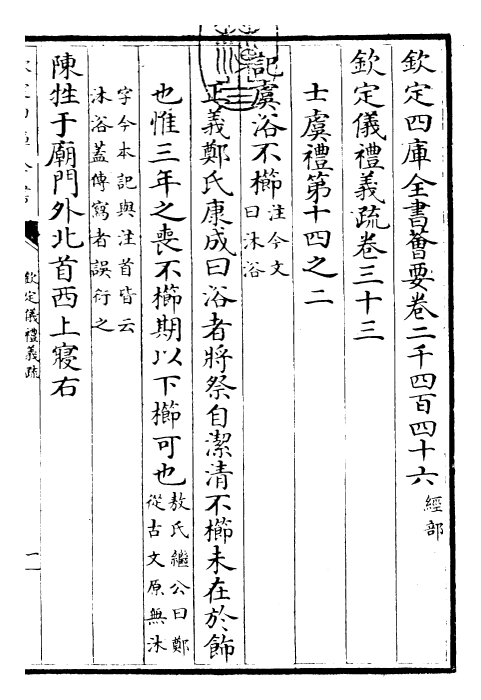 欽定四庫全書薈要卷二千四百四十六 經部
欽定儀禮義疏卷三十三
士虞禮第十四之二
記虞浴不櫛 注今文曰沐浴
正義鄭氏康成曰浴者將祭自潔清不櫛未在於飾
也惟三年之喪不櫛期以下櫛可也 敖氏繼公曰鄭從古文原無沐
字今本記與注首皆云沐浴蓋傳寫者誤衍之
陳牲于廟門外北首西上寢右
欽定儀禮義疏
一